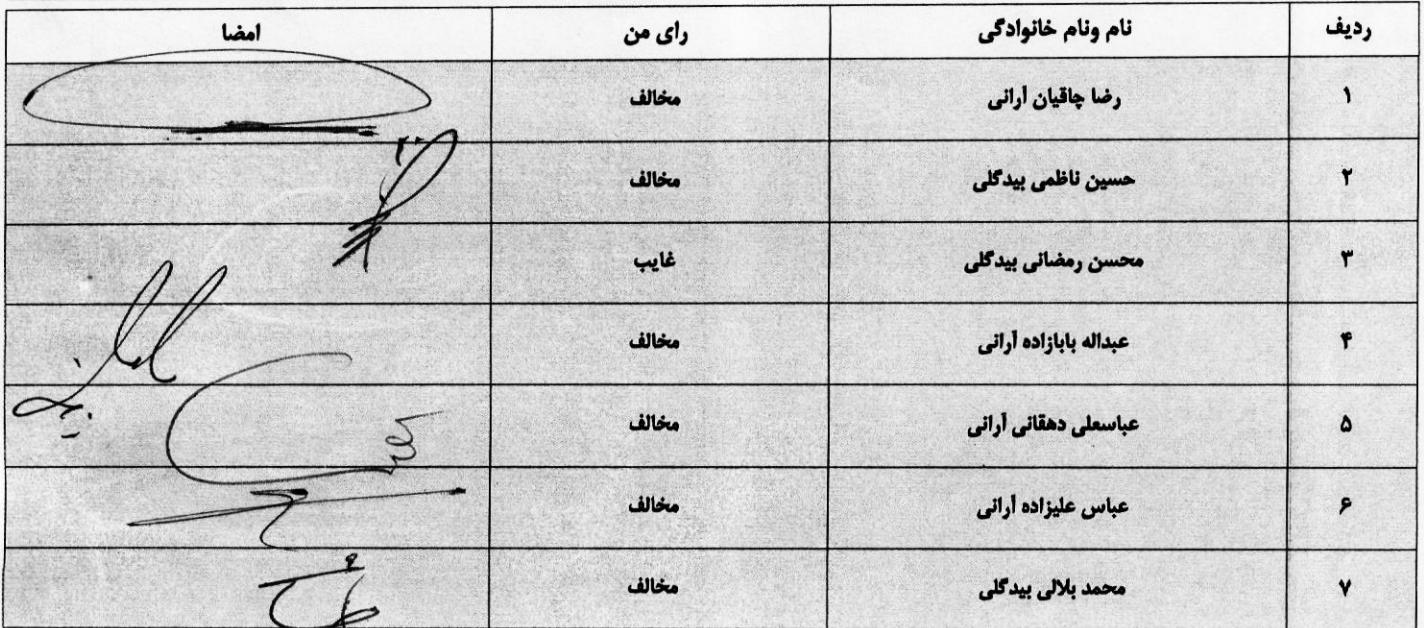 ردیف نام ونام خانوادگی رای من امضا
۱ رضا چاقیان آرانی مخالف
۲ حسین ناظمی بیدگلی مخالف
۳ محسن رمضانی بیدگلی غایب
۴ عبداله بابازاده آرانی مخالف
۵ عباسعلی دهقانی آرانی مخالف
۶ عباس علیزاده آرانی مخالف
۷ محمد بلالی بیدگلی مخالف